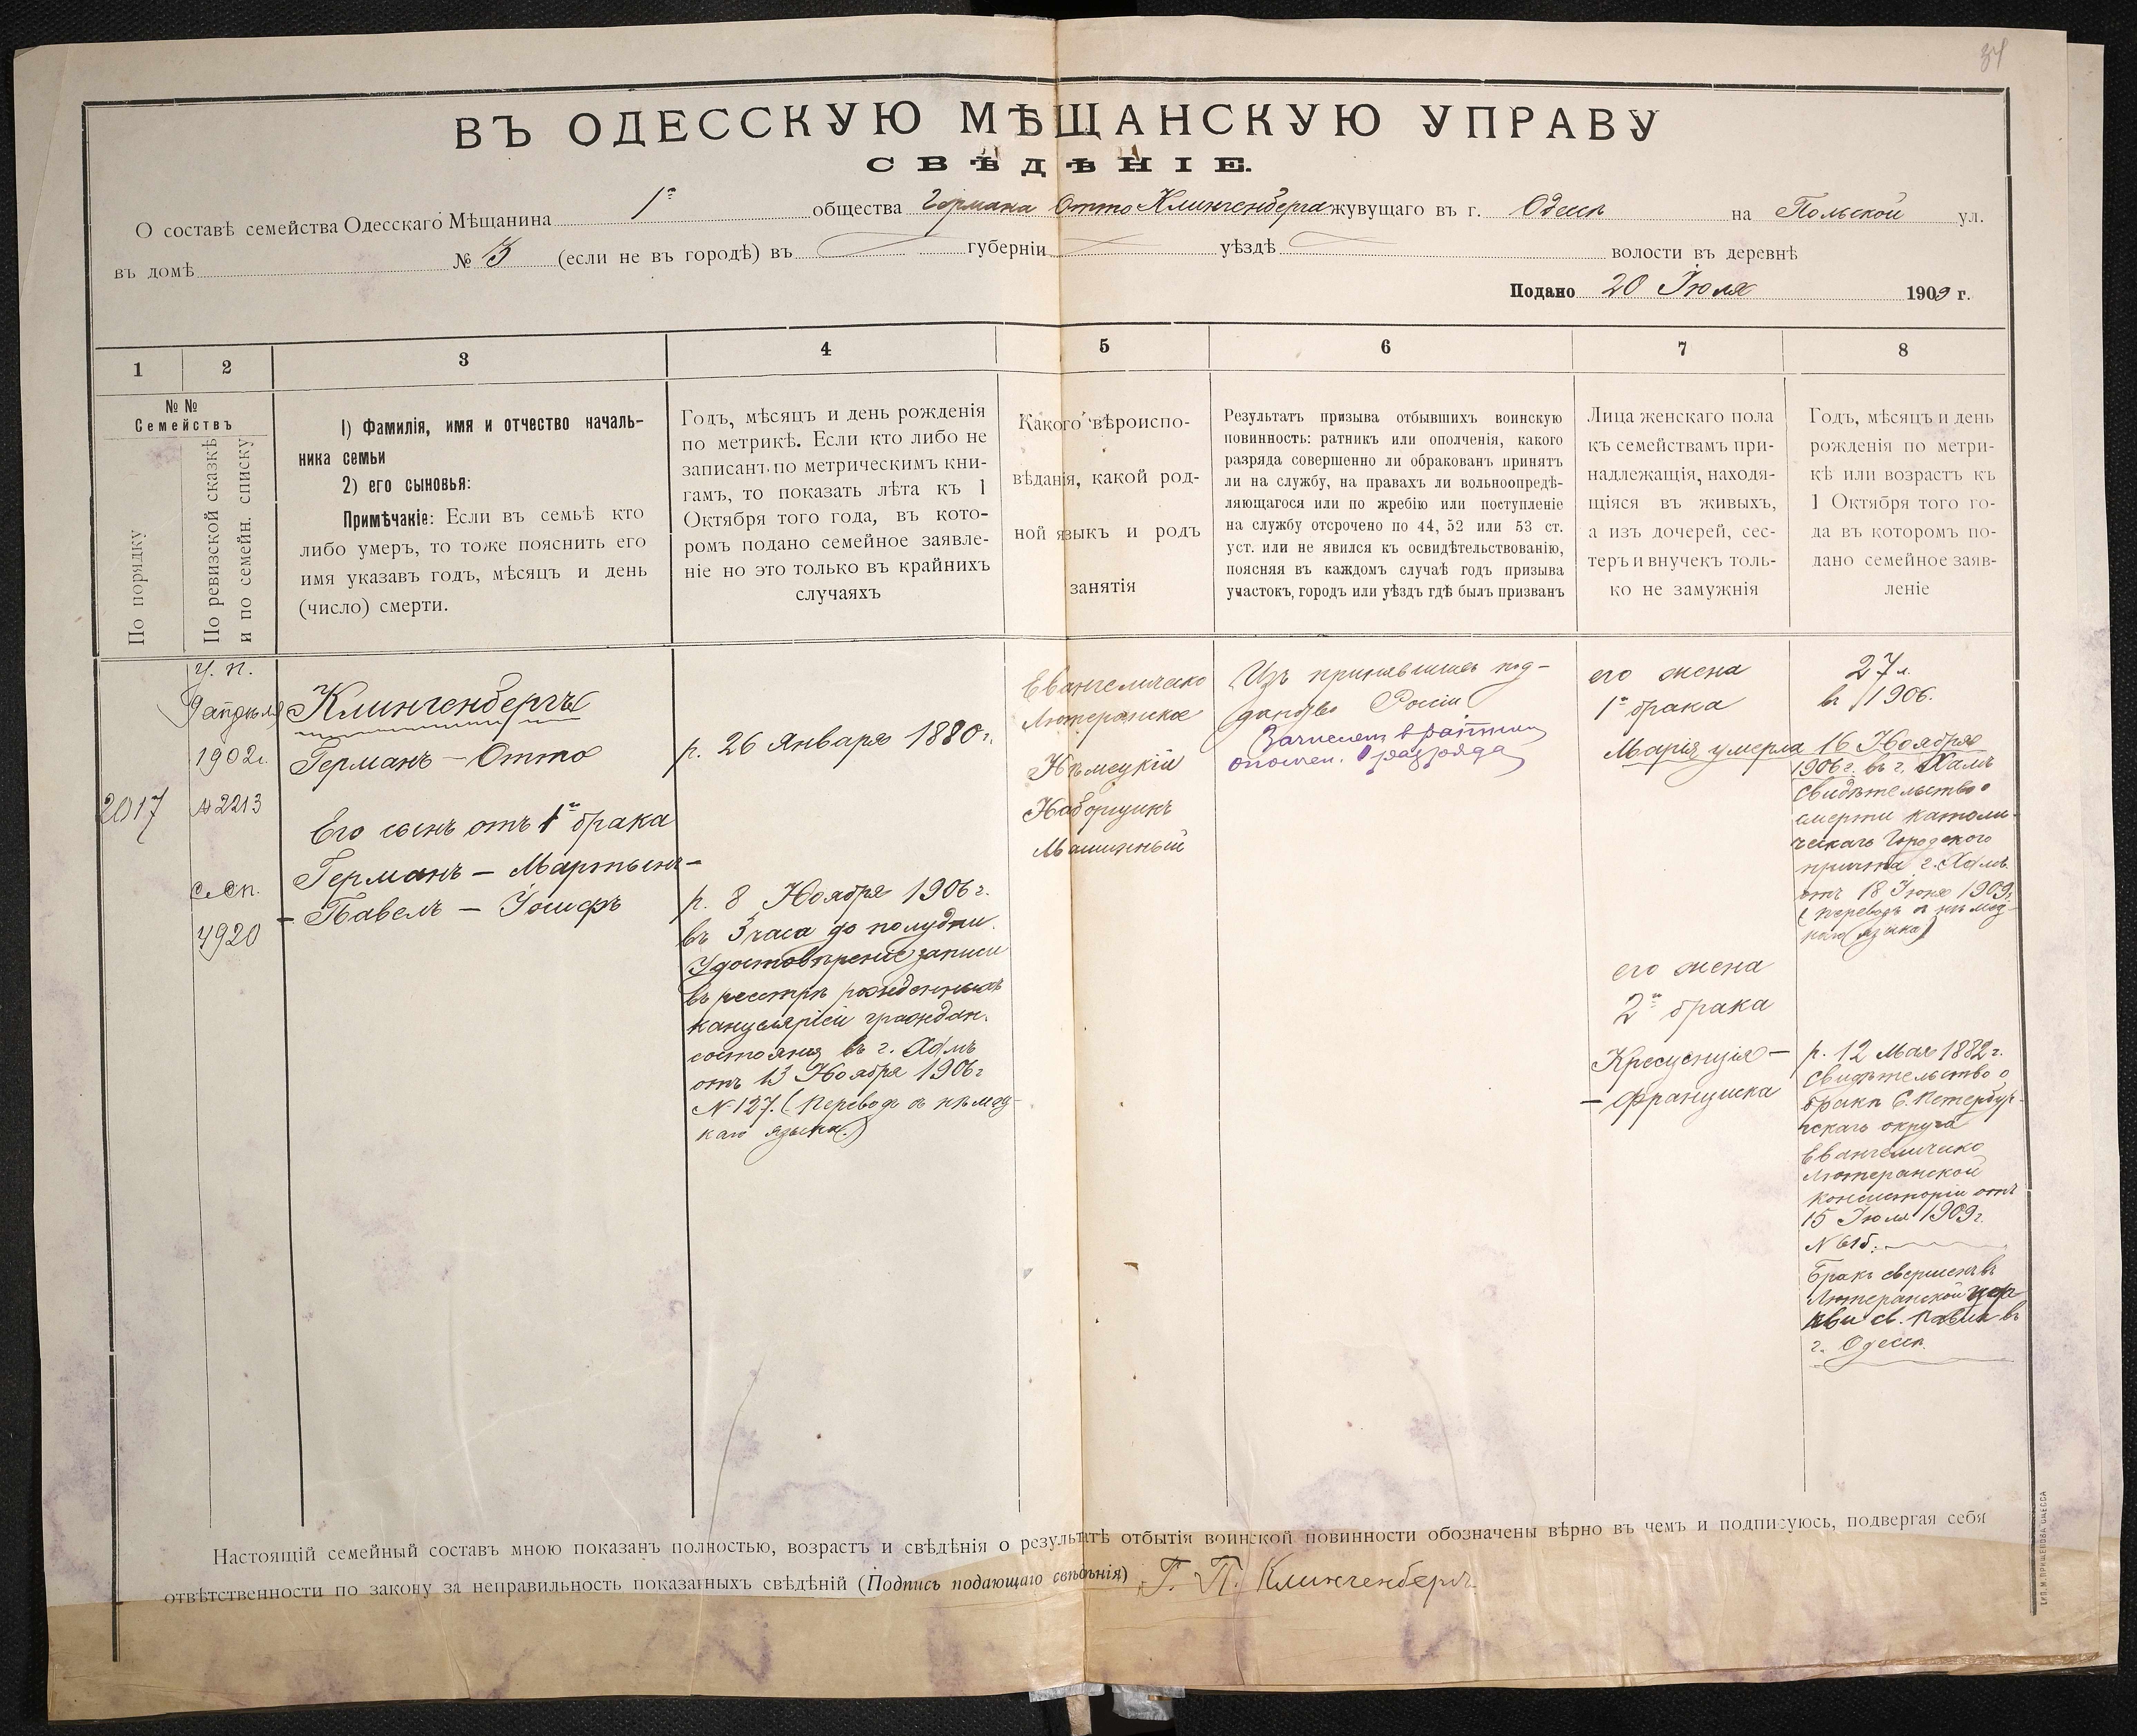 34
ВЪ ОДЕССКУЮ МѢЩАНСКУЮ УПРАВУ
СВѢДѢНІЕ.
О составѣ семейства Одесскаго Мѣщанина 1го общества Германа Отто Клингенберга жувущаго въ г. Одессѣ на Польской ул.
въ домѣ № 3 (если не въ городѣ) въ губерніи уѣздѣ волости въ деревнѣ
Подано 20 Іюля 1909 г.
1
2
3
4
5
6
7
8
№№
Семействъ
По порядку
По ревизской сказкѣ
и по семейн. списку
1) Фамилія, имя и отчество началь-
ника семьи
2) его сыновья:
Примѣчакіе: Если въ семьѣ кто
либо умеръ, то тоже пояснить его
имя указавъ годъ, мѣсяцъ и день
(число) смерти.
Годъ, мѣсяцъ и день рожденія
по метрикѣ. Если кто либо не
записанъ по метрическимъ кни-
гамъ, то показать лѣта къ 1
Октября того года, въ кото-
ромъ подано семейное заявле-
ніе но это только въ крайнихъ
случаяхъ
Какого вѣроиспо-
вѣданія, какой род-
ной языкъ и родъ
занятія
Результатъ призыва отбывшихъ воинскую
повинность: ратникъ или ополченія, какого
разряда совершенно ли обракованъ принятъ
ли на службу, на правахъ ли вольноопредѣ-
ляющагося или по жребію или поступленіе
на службу отсрочено по 44, 52 или 53 ст.
уст. или не явился къ освидѣтельствованію,
поясняя въ каждомъ случаѣ годъ призыва
участокъ, городъ или уѣздъ гдѣ былъ призванъ
Лица женскаго пола
къ семействамъ при-
надлежащія, находя-
щіяся въ живыхъ,
а изъ дочерей, сес-
теръ и внучекъ толь-
ко не замужнія
Годъ, мѣсяцъ и день
рожденія по метри-
кѣ или возрастъ къ
1 Октября того го-
да въ которомъ по-
дано семейное заяв-
леніе
2017
У. п.
1902 г.
№ 2213
4920
Клингенбергъ
Германъ — Отто
Его сынъ отъ 1го брака
Германъ — Мартынъ —
— Павелъ — Іосифъ
р. 26 Января 1880 г.
р. 8 Ноября 1906 г.
въ 3 часа до полудни.
Удостовѣреніе записи
въ реестрѣ рожденныхъ
канцеляріей граждан.
состоянія въ г. Хамъ
отъ 13 Ноября 1906 г.
№ 127. (Переводъ съ нѣмец-
каго языка.)
Евангелическо
Лютеранское
Нѣмецкій
Наборщикъ
Машинный
Изъ принявшихъ под-
данство Россіи
Зачисленъ в ратники
ополчен. 1 разряда
его жена
1го брака
Марія умерла
его жена
2го брака
Кресценція —
— Франциска
27 л.
въ 1906.
16 Ноября
1906 г. въ г. Хамъ
Свидѣтельство о
смерти католи-
ческаго Городского
причта г. Хамъ
отъ 18 Іюня 1909 г.
(переводъ съ нѣмец-
каго языка)
р. 12 Мая 1882 г.
Свидѣтельство о
бракѣ С. Петербург-
скаго округа
Евангелическо
Лютеранской
консисторіи отъ
15 Іюля 1909 г.
№ 615.
Бракъ свершенъ въ
Лютеранской цер
кви св. Павла въ
г. Одессѣ.
Настоящій семейный составъ мною показанъ полностью, возрастъ и свѣдѣнія о результатѣ отбытія воинской повинности обозначены вѣрно въ чемъ и подписуюсь, подвергая себя
отвѣтственности по закону за неправильность показанныхъ свѣдѣній (Подпись подающаго свѣдѣнія) Г. П. Клингенбергъ